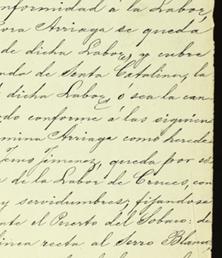 nformidad á la Labor,
ora Arriaga se queda
de dicha Labor, y cubre
ado de Santa Catalina, la
l dicha Labor, o sea la can
do conforme á las siguien
mina Arriaga como herede
Jimenez, queda por
a de la Labor de Cruces, con
y servidumbres, fijandose
nte el Puerto del Sobaco: de
linea recta al Serro Blanco,